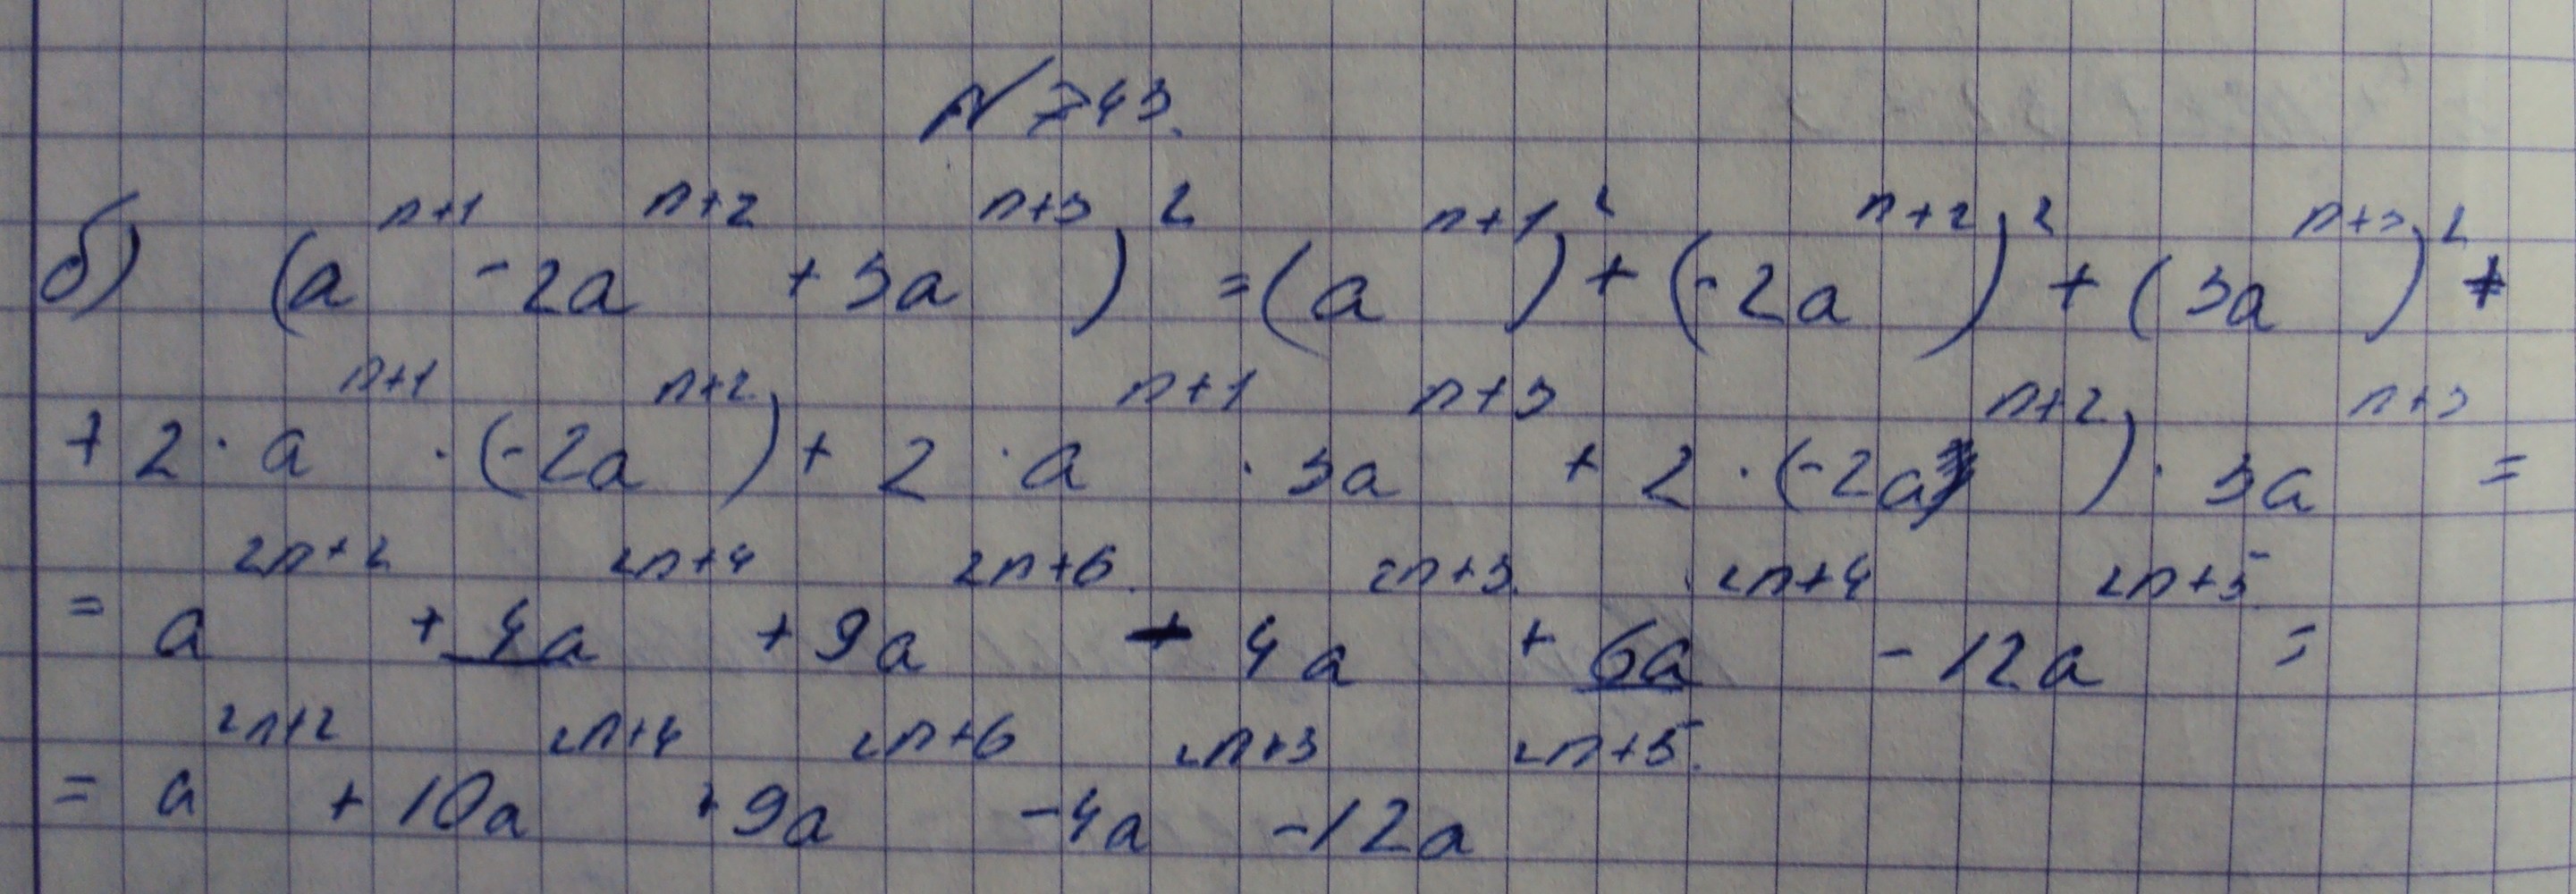 №743.
б) (a^{n+1} - 2a^{n+2} + 3a^{n+3})^2 = (a^{n+1})^2 + (-2a^{n+2})^2 + (3a^{n+3})^2 +
+ 2 · a^{n+1} · (-2a^{n+2}) + 2 · a^{n+1} · 3a^{n+3} + 2 · (-2a^{n+2}) · 3a^{n+3} =
= a^{2n+2} + 4a^{2n+4} + 9a^{2n+6} - 4a^{2n+3} + 6a^{2n+4} - 12a^{2n+5} =
= a^{2n+2} + 10a^{2n+4} + 9a^{2n+6} - 4a^{2n+3} - 12a^{2n+5}.